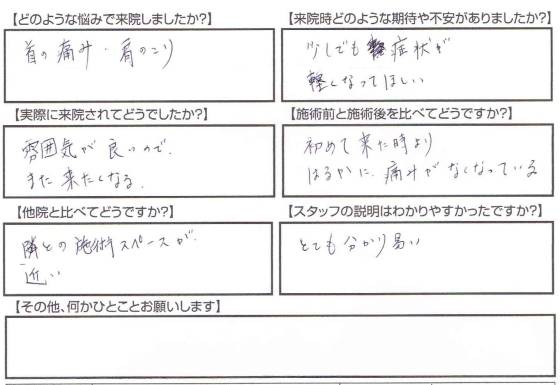 【どのような悩みで来院しましたか?】
首の痛み・肩のこり
【来院時どのような期待や不安がありましたか?】
少しでも症状が
軽くなってほしい
【実際に来院されてどうでしたか?】
雰囲気が良いので、
また来たくなる。
【施術前と施術後を比べてどうですか?】
初めて来た時より
はるかに、痛みがなくなっている
【他院と比べてどうですか?】
隣との施術スペースが、
近い
【スタッフの説明はわかりやすかったですか?】
とても分かり易い
【その他、何かひとことお願いします】